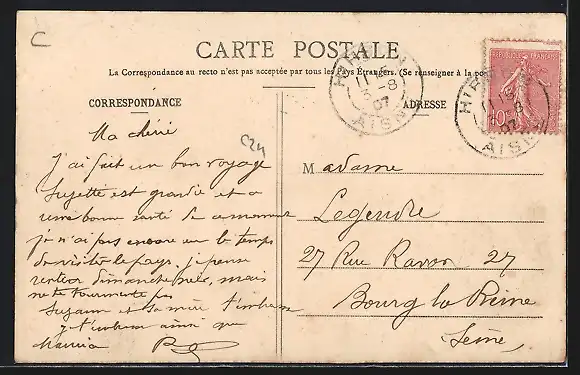 C
CARTE POSTALE
La Correspondance au recto n'est pas acceptée par tous les Pays Étrangers. (Se renseigner à la pos
CORRESPONDANCE
ADRESSE
C24
Ma chérie
J'ai fait un bon voyage
Suzette est grandie et a
une bonne santé
je n'ai pas encore eu le temps
de visiter le pays, je pense
rentrer dimanche mais
ne te tourmente pas
Suzanne et sa mère t'embrasse
je t'embrasse ainsi que
Mamia
Madame
Legendre
27 Rue Ravon 27
Bourg la Reine
Seine
HIRSON
11 15
3 -8
07
AISNE
RÉPUBLIQUE FRANÇAISE
10
HIRSON
07
AISNE